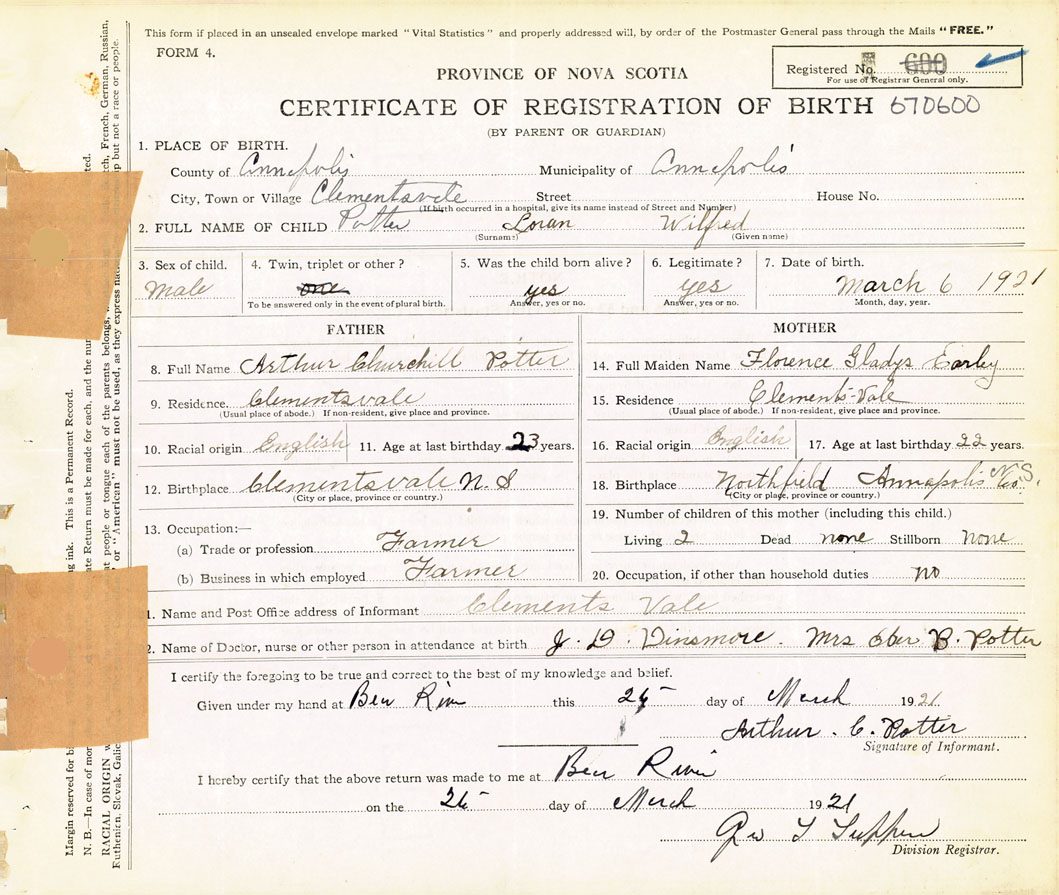 This form if placed in an unsealed envelope marked "Vital Statistics" and properly addressed will, by order of the Postmaster General pass through the Mails "FREE."
FORM 4.
Registered No. 600
For use of Registrar General only.
PROVINCE OF NOVA SCOTIA
CERTIFICATE OF REGISTRATION OF BIRTH 670600
(BY PARENT OR GUARDIAN)
1. PLACE OF BIRTH.
County of Annapolis Municipality of Annapolis
City, Town or Village Clementsvale Street House No.
(If birth occurred in a hospital, give its name instead of Street and Number)
2. FULL NAME OF CHILD Potter Loran Wilfred
(Surname) (Given name)
3. Sex of child. 4. Twin, triplet or other? 5. Was the child born alive? 6. Legitimate? 7. Date of birth.
Male one yes yes March 6 1921
To be answered only in the event of plural birth. Answer, yes or no. Answer, yes or no. Month, day, year.
FATHER
8. Full Name Arthur Churchill Potter
9. Residence. Clementsvale
(Usual place of abode.) If non-resident, give place and province.
10. Racial origin English 11. Age at last birthday 23 years.
12. Birthplace Clementsvale N. S
(City or place, province or country.)
13. Occupation:—
(a) Trade or profession Farmer
(b) Business in which employed Farmer
MOTHER
14. Full Maiden Name Florence Gladys Earley
15. Residence Clements-Vale
(Usual place of abode.) If non-resident, give place and province.
16. Racial origin English 17. Age at last birthday 22 years.
18. Birthplace Northfield Annapolis Co. N.S.
(City or place, province or country.)
19. Number of children of this mother (including this child.)
Living 2 Dead none Stillborn none
20. Occupation, if other than household duties no
1. Name and Post Office address of Informant Clements Vale
2. Name of Doctor, nurse or other person in attendance at birth J. D. Dinsmore. Mrs Eber B. Potter
I certify the foregoing to be true and correct to the best of my knowledge and belief.
Given under my hand at Bear River this day of March 1921
Arthur. C. Potter
Signature of Informant.
I hereby certify that the above return was made to me at Bear River
on the day of March 1921
Geo Tupper
Division Registrar.
Margin reserved for
ng ink. This is a Permanent Record.
N. B.—In case of
ate Return must be made for each, and the
RACIAL ORIGIN
at people or tongue each of the parents belongs,
tch, French, German, Russian,
Ruthenian, Slovak,
or "American" must not be used, as they express
but not a race or people.